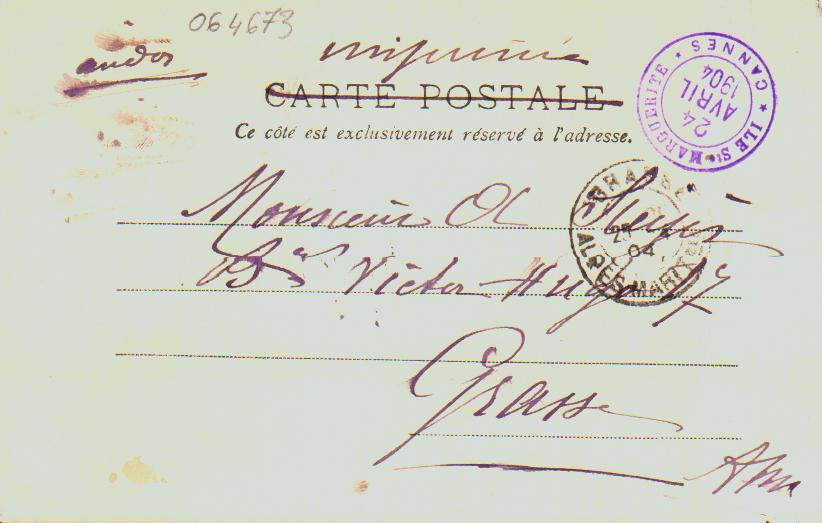 064673
imprimé
CARTE POSTALE
Ce côté est exclusivement réservé à l'adresse.
ILE Ste MARGUERITE ★ CANNES ★
24
AVRIL
1904
GRASSE
25
04
ALPES MARIT
Monsieur
Bd Victor-Hugo 7
Grasse